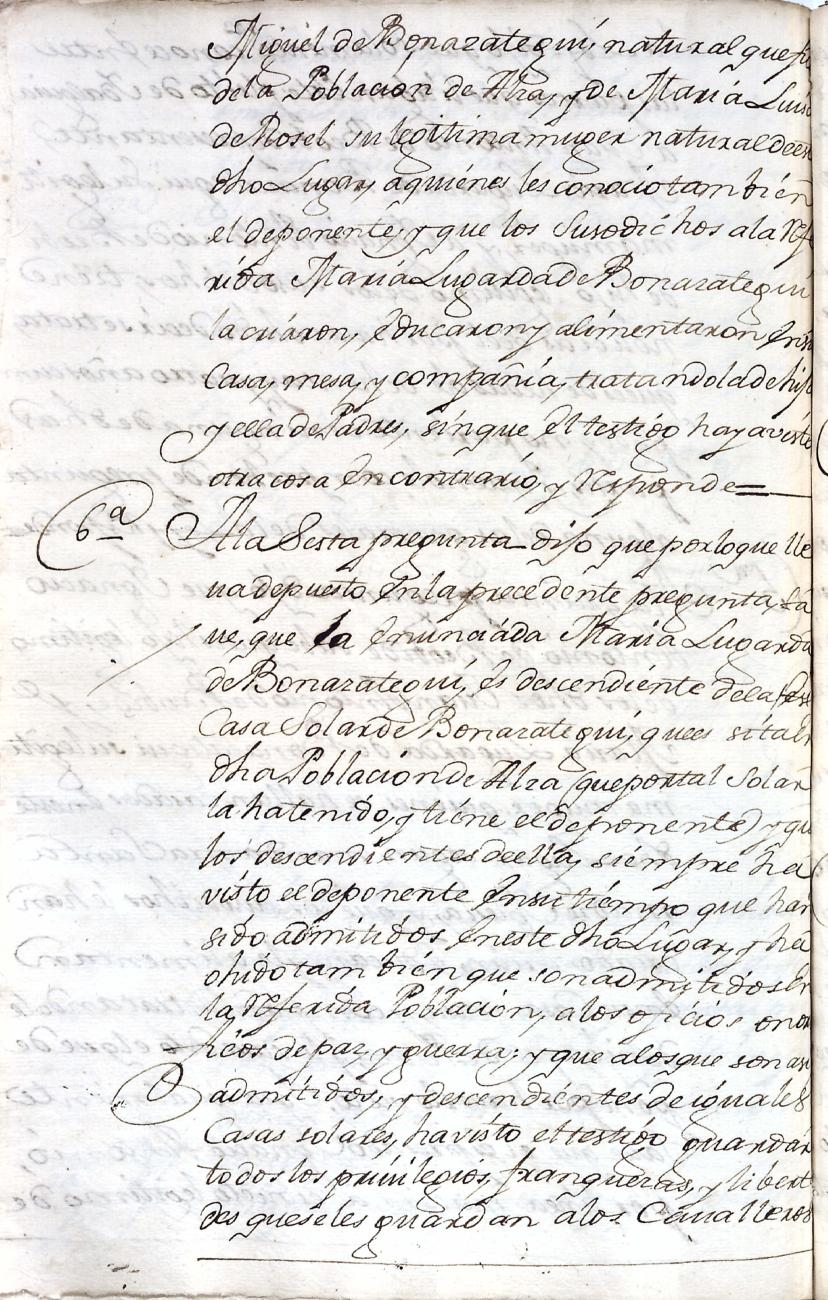 Miguel de Bonazategui, natural que fu
dela Poblacion de Alza, y de Maria Luisa
de Rosel su legitima muger natural deeste
dho Lugar, a quienes les conocio tambien
el deponente, y que los susodichos ala Refe
rida Maria Lugarda de Bonazategui
la criaron, educaron y alimentaron en su
Casa, mesa, y compañia, tratandola de hija
y ella de Padres, sin que el testigo haya visto
otra cosa en contrario, y Responde=
6ª Ala Sesta pregunta dijo que por lo que lle
va depuesto en la precedente pregunta, sa
ve, que la enunciada Maria Lugarda
de Bonazategui, es descendiente de la
Casa Solar de Bonazategui, que es sita en
dha Poblacion de Alza (que por tal Solar
la ha tenido, y tiene el deponente) y que
los descendientes de ella, siempre ha
visto el deponente en su tiempo que han
sido admitidos en este dho Lugar, y ha
ohido tambien que son admitidos en
la Referida Poblacion, a los oficios onor
ficos de paz, y guerra; y que a los que son asi
admitidos, y descendientes de iguales
Casas solares, ha visto el testigo guardar
todos los privilegios, franquezas, y liberta
des que se les guardan a los Cavalleros